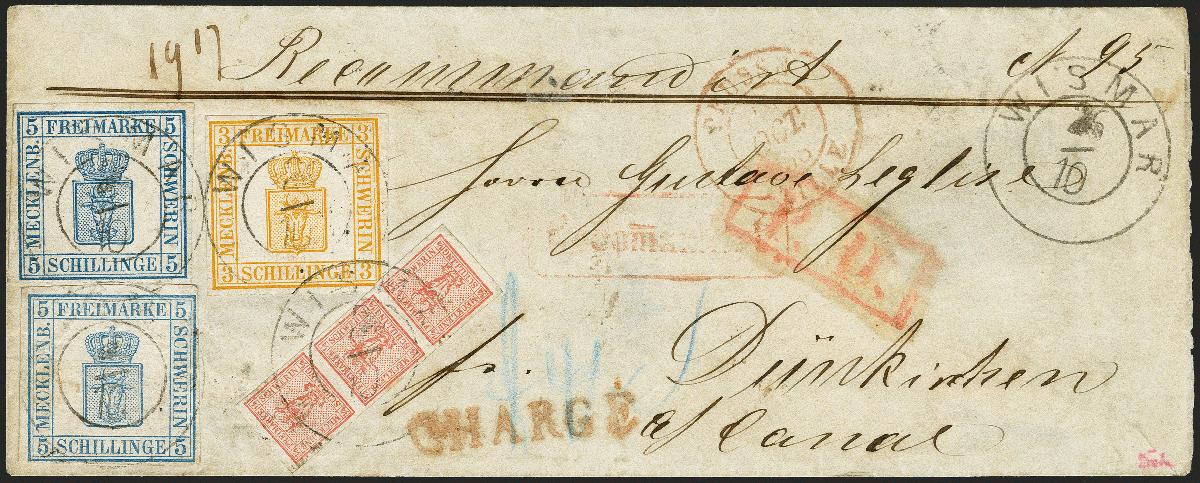 19 17 Recommandirt N 95
WISMAR
10
5 FREIMARKE 5
MECKLENB. SCHWERIN
5 SCHILLINGE 5
3 FREIMARKE 3
SCHWERIN
3 SCHILLINGE 3
WISMAR
OCT.
Herrn Gustave Leglise
P. D.
5 FREIMARKE 5
MECKLENB. SCHWERIN
5 SCHILLINGE 5
WISMAR
fr. Dünkirchen
CHARGÉ
a/Canal